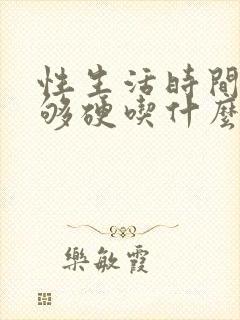 性生活時間
够硬喫什麽
樂敏霞